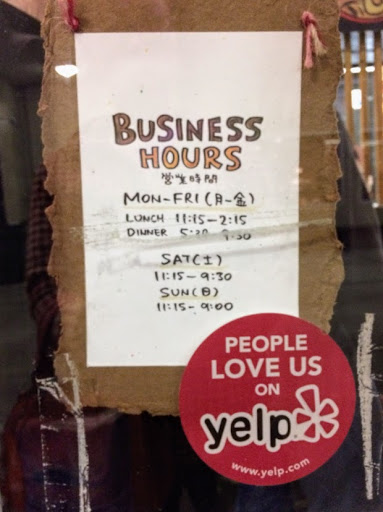 BUSINESS
HOURS
営業時間
MON-FRI (月-金)
LUNCH 11:15-2:15
DINNER 5:30
SAT (土)
11:15-9:30
SUN (日)
11:15-9:00
PEOPLE
LOVE US
ON
yelp
www.yelp.com